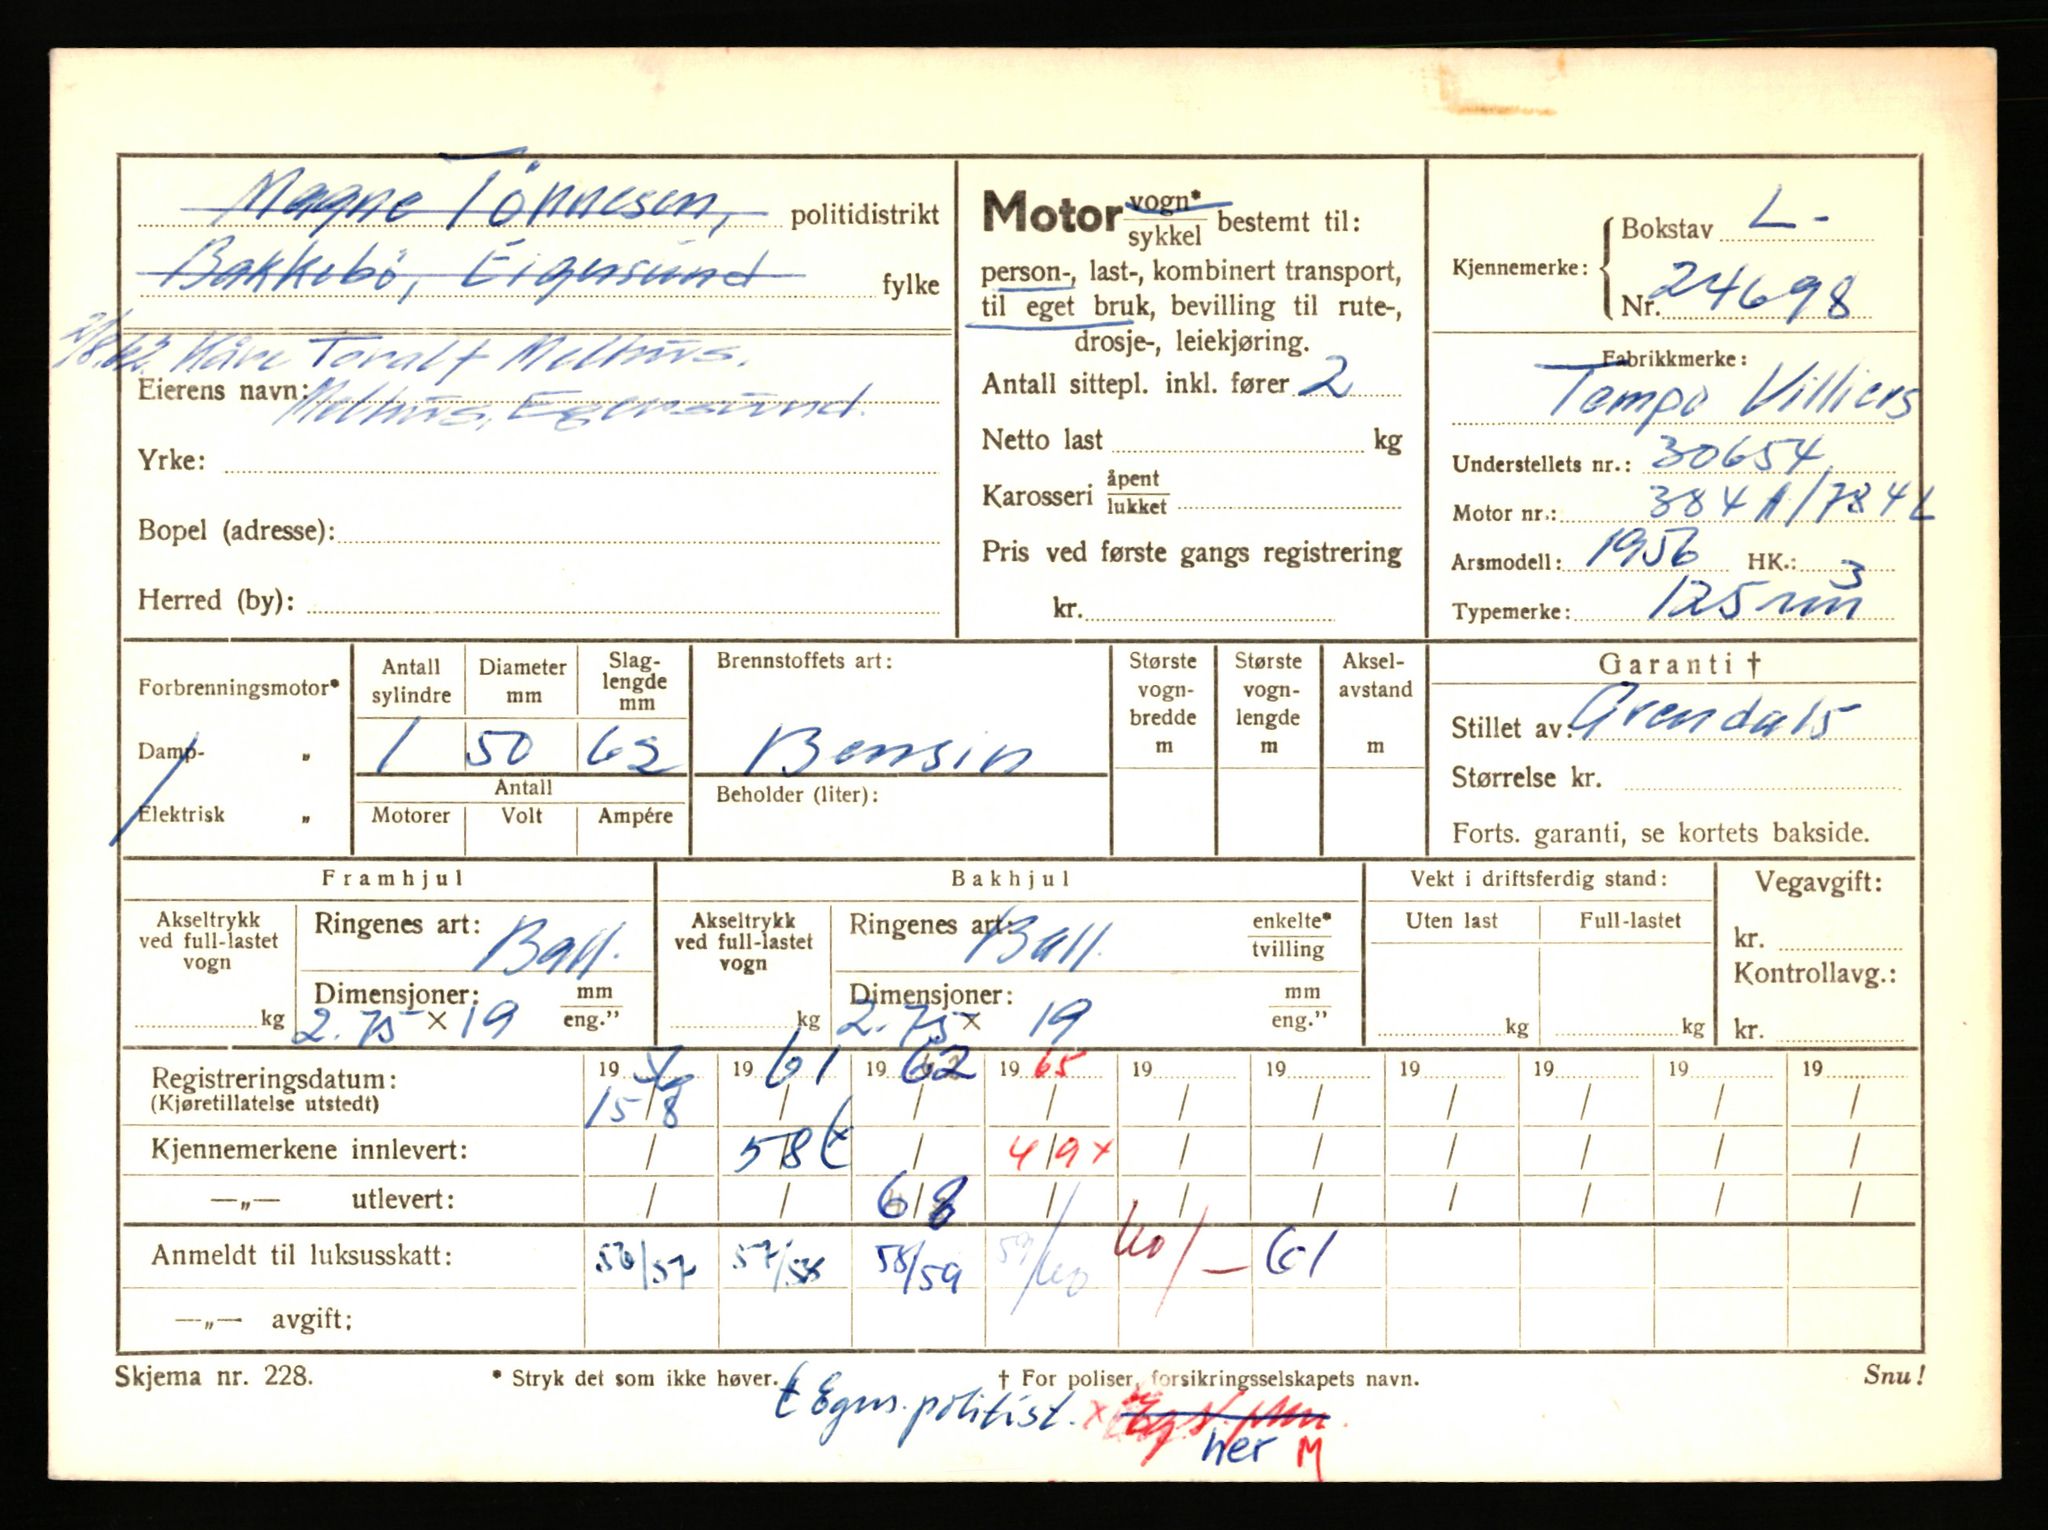 Magne Tönnesen, politidistrikt
Bakkebö, Eigersund fylke
2/8.62. Kåre Toralf Melhus.
Eierens navn: Melhus, Egersund.
Yrke:
Bopel (adresse):
Herred (by):
Motor vogn* / sykkel bestemt til:
person-, last-, kombinert transport,
til eget bruk, bevilling til rute-,
drosje-, leiekjøring.
Antall sittepl. inkl. fører 2
Netto last kg
Karosseri åpent / lukket
Pris ved første gangs registrering
kr.
Kjennemerke: Bokstav L-
Nr. 24698
Fabrikkmerke:
Tempo Villiers
Understellets nr.: 30654
Motor nr.: 384 A/784 L
Arsmodell: 1956 HK.: 3
Typemerke: 125 
Forbrenningsmotor*
Damp- „
Elektrisk „
Antall sylindre Diameter mm Slag-lengde mm
1 50 62
Antall
Motorer Volt Ampére
Brennstoffets art:
Bensin
Beholder (liter):
Største vogn-bredde m
Største vogn-lengde m
Aksel-avstand m
Garanti †
Stillet av: Arendals
Størrelse kr.
Forts. garanti, se kortets bakside.
Framhjul
Akseltrykk ved full-lastet vogn
kg
Ringenes art: Ball.
Dimensjoner: mm / eng.”
2.75 x 19
Bakhjul
Akseltrykk ved full-lastet vogn
kg
Ringenes art: Ball. enkelte* / tvilling
Dimensjoner: mm / eng.”
2.75 x 19
Vekt i driftsferdig stand:
Uten last Full-lastet
kg kg
Vegavgift:
kr.
Kontrollavg.:
kr.
Registreringsdatum: 19 56 19 61 19 62 19 65 19 19 19 19 19 19
(Kjøretillatelse utstedt) 15/8 / / / / / / / / /
Kjennemerkene innlevert: / 5/8 t / 4/9 x / / / / / /
—„— utlevert: / / 6/8 / / / / / / /
Anmeldt til luksusskatt: 56/57 57/58 58/59 59/60 60/– 61
—„— avgift:
Skjema nr. 228. * Stryk det som ikke høver. † For poliser, forsikringsselskapets navn. Snu!
t Egns. politist. x
her M